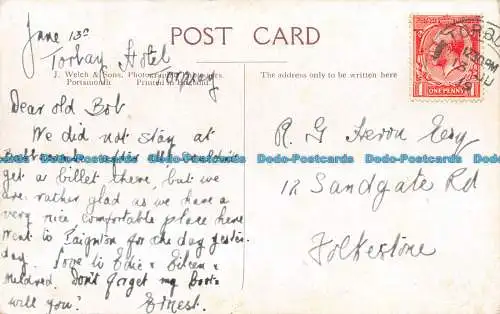 June 13th
Torbay Hotel
Torquay
POST CARD
J. Welch & Sons, Photographic Publishers,
Portsmouth Printed in England
The address only to be written here
Dear old Bob
We did not stay at
Babbacombe after all couldn't
get a billet there, but we
are rather glad as we have a
very nice comfortable place here
Went to Paignton for the day yester
day. Love to Edie & Eileen &
Mildred. Don't forget my boots
will you? Ernest.
R. G Heron Esq
12 Sandgate Rd
Folkestone
TORQU
12.30PM
13 JU
19
ONE PENNY
Dodo-Postcards Dodo-Postcards Dodo-Postcards Dodo-Postcards Dodo-Postcards